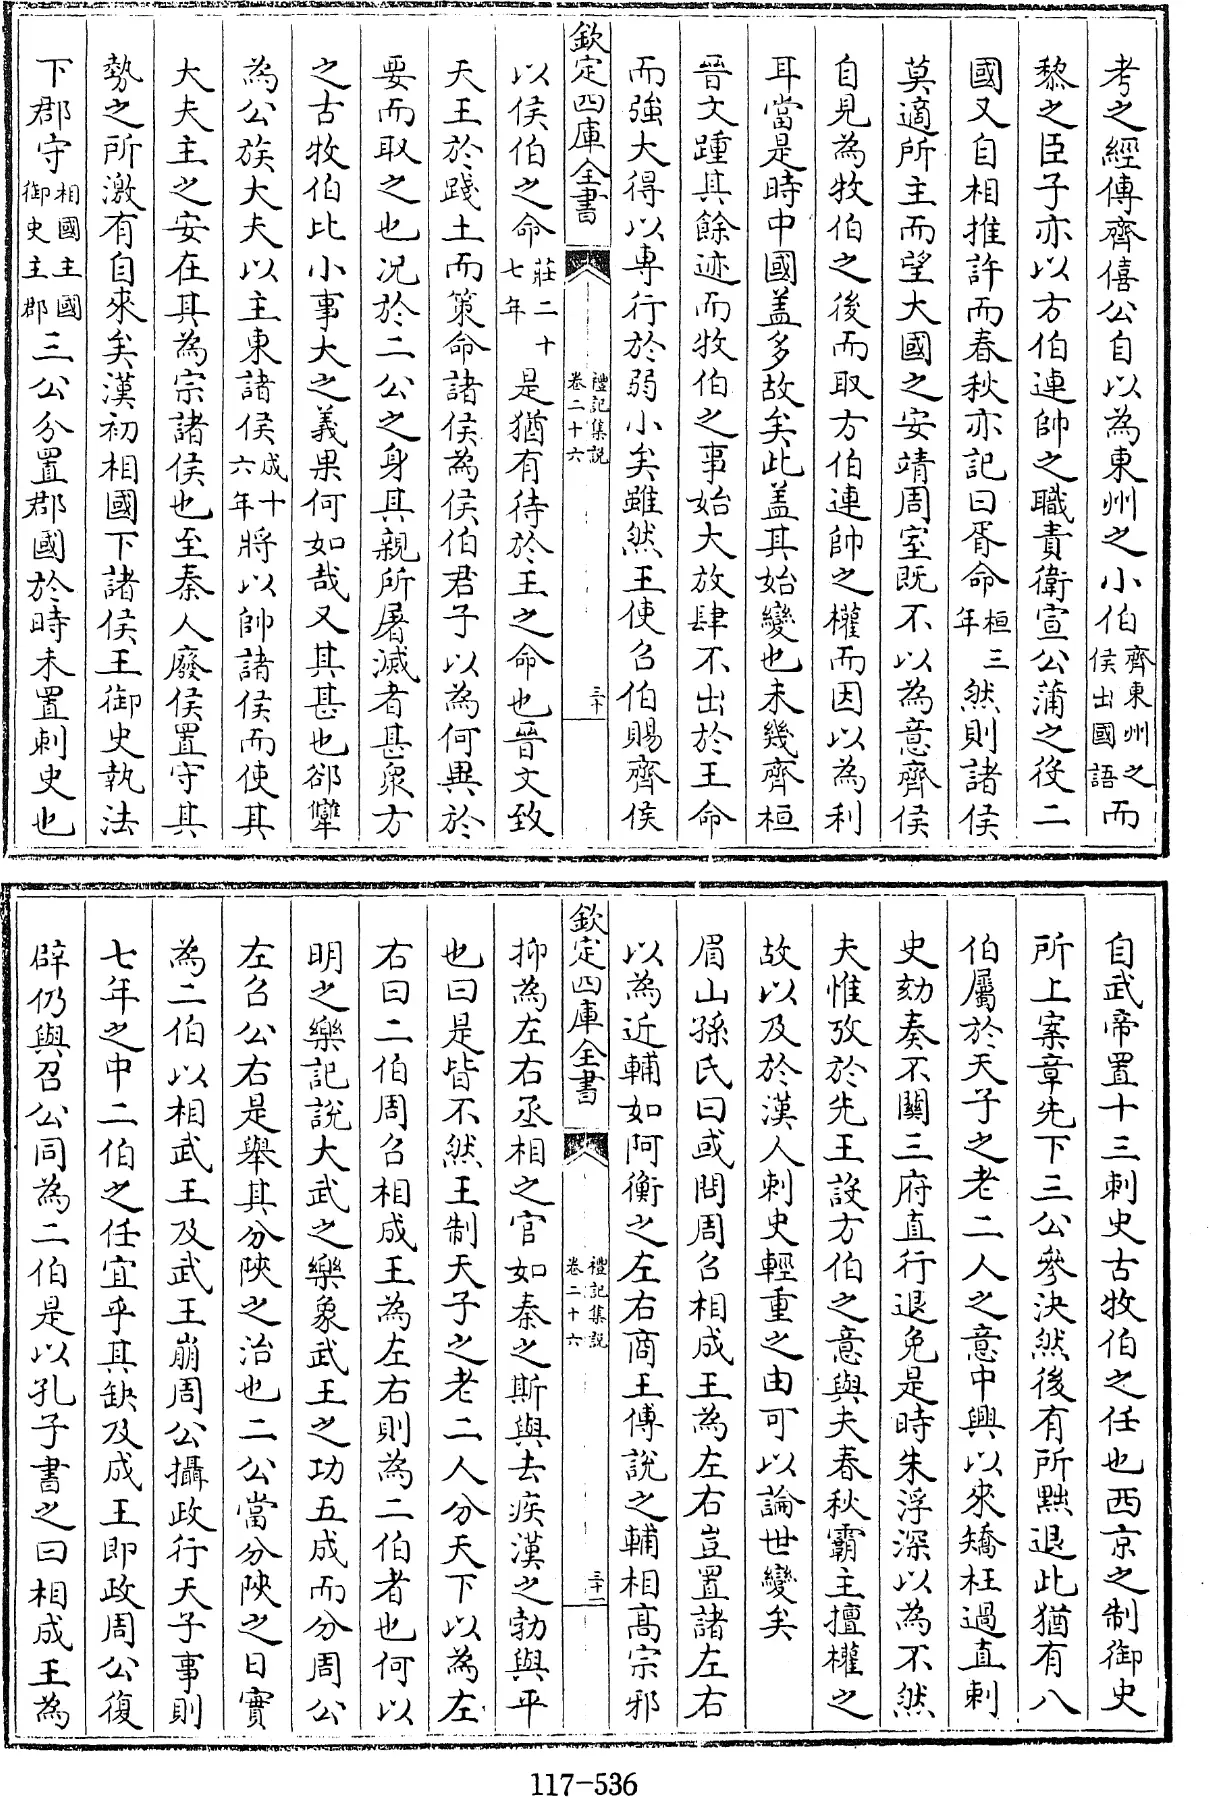 考之經傳齊僖公自以為東州之小伯齊東州之侯出國語而
黎之臣子亦以方伯連帥之職責衛宣公蒲之役二
國又自相推許而春秋亦記曰胥命桓三年然則諸侯
莫適所主而望大國之安靖周室既不以為意齊侯
自見為牧伯之後而取方伯連帥之權而因以為利
耳當是時中國盖多故矣此盖其始變也未幾齊桓
晉文踵其餘迹而牧伯之事始大放肆不出於王命
而強大得以專行於弱小矣雖然王使召伯賜齊侯
欽定四庫全書
禮記集說
卷二十六
三十
以侯伯之命莊二十七年是猶有待於王之命也晉文致
天王於踐土而策命諸侯為侯伯君子以為何異於
要而取之也况於二公之身其親所屠滅者甚衆方
之古牧伯比小事大之義果何如哉又其甚也郤犨
為公族大夫以主東諸侯成十六年將以帥諸侯而使其
大夫主之安在其為宗諸侯也至秦人廢侯置守其
勢之所激有自來矣漢初相國下諸侯王御史執法
下郡守相國主國御史主郡三公分置郡國於時未置刺史也
自武帝置十三刺史古牧伯之任也西京之制御史
所上案章先下三公參決然後有所黜退此猶有八
伯屬於天子之老二人之意中興以來矯枉過直刺
史劾奏不關三府直行退免是時朱浮深以為不然
夫惟攷於先王設方伯之意與夫春秋霸主擅權之
故以及於漢人刺史輕重之由可以論世變矣
眉山孫氏曰或問周召相成王為左右豈置諸左右
以為近輔如阿衡之左右商王傅說之輔相高宗邪
欽定四庫全書
禮記集說
卷二十六
三十一
抑為左右丞相之官如秦之斯與去疾漢之勃與平
也曰是皆不然王制天子之老二人分天下以為左
右曰二伯周召相成王為左右則為二伯者也何以
明之樂記說大武之樂象武王之功五成而分周公
左召公右是舉其分陜之治也二公當分陜之日實
為二伯以相武王及武王崩周公攝政行天子事則
七年之中二伯之任宜乎其缺及成王即政周公復
辟仍與召公同為二伯是以孔子書之曰相成王為
117-536